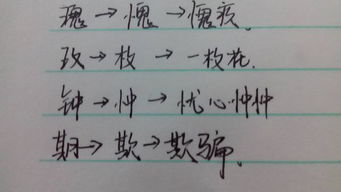 瑰→愧→愧疚.
玫→枚→一枚花.
钟→忡→忧心忡忡
期→欺→欺骗.